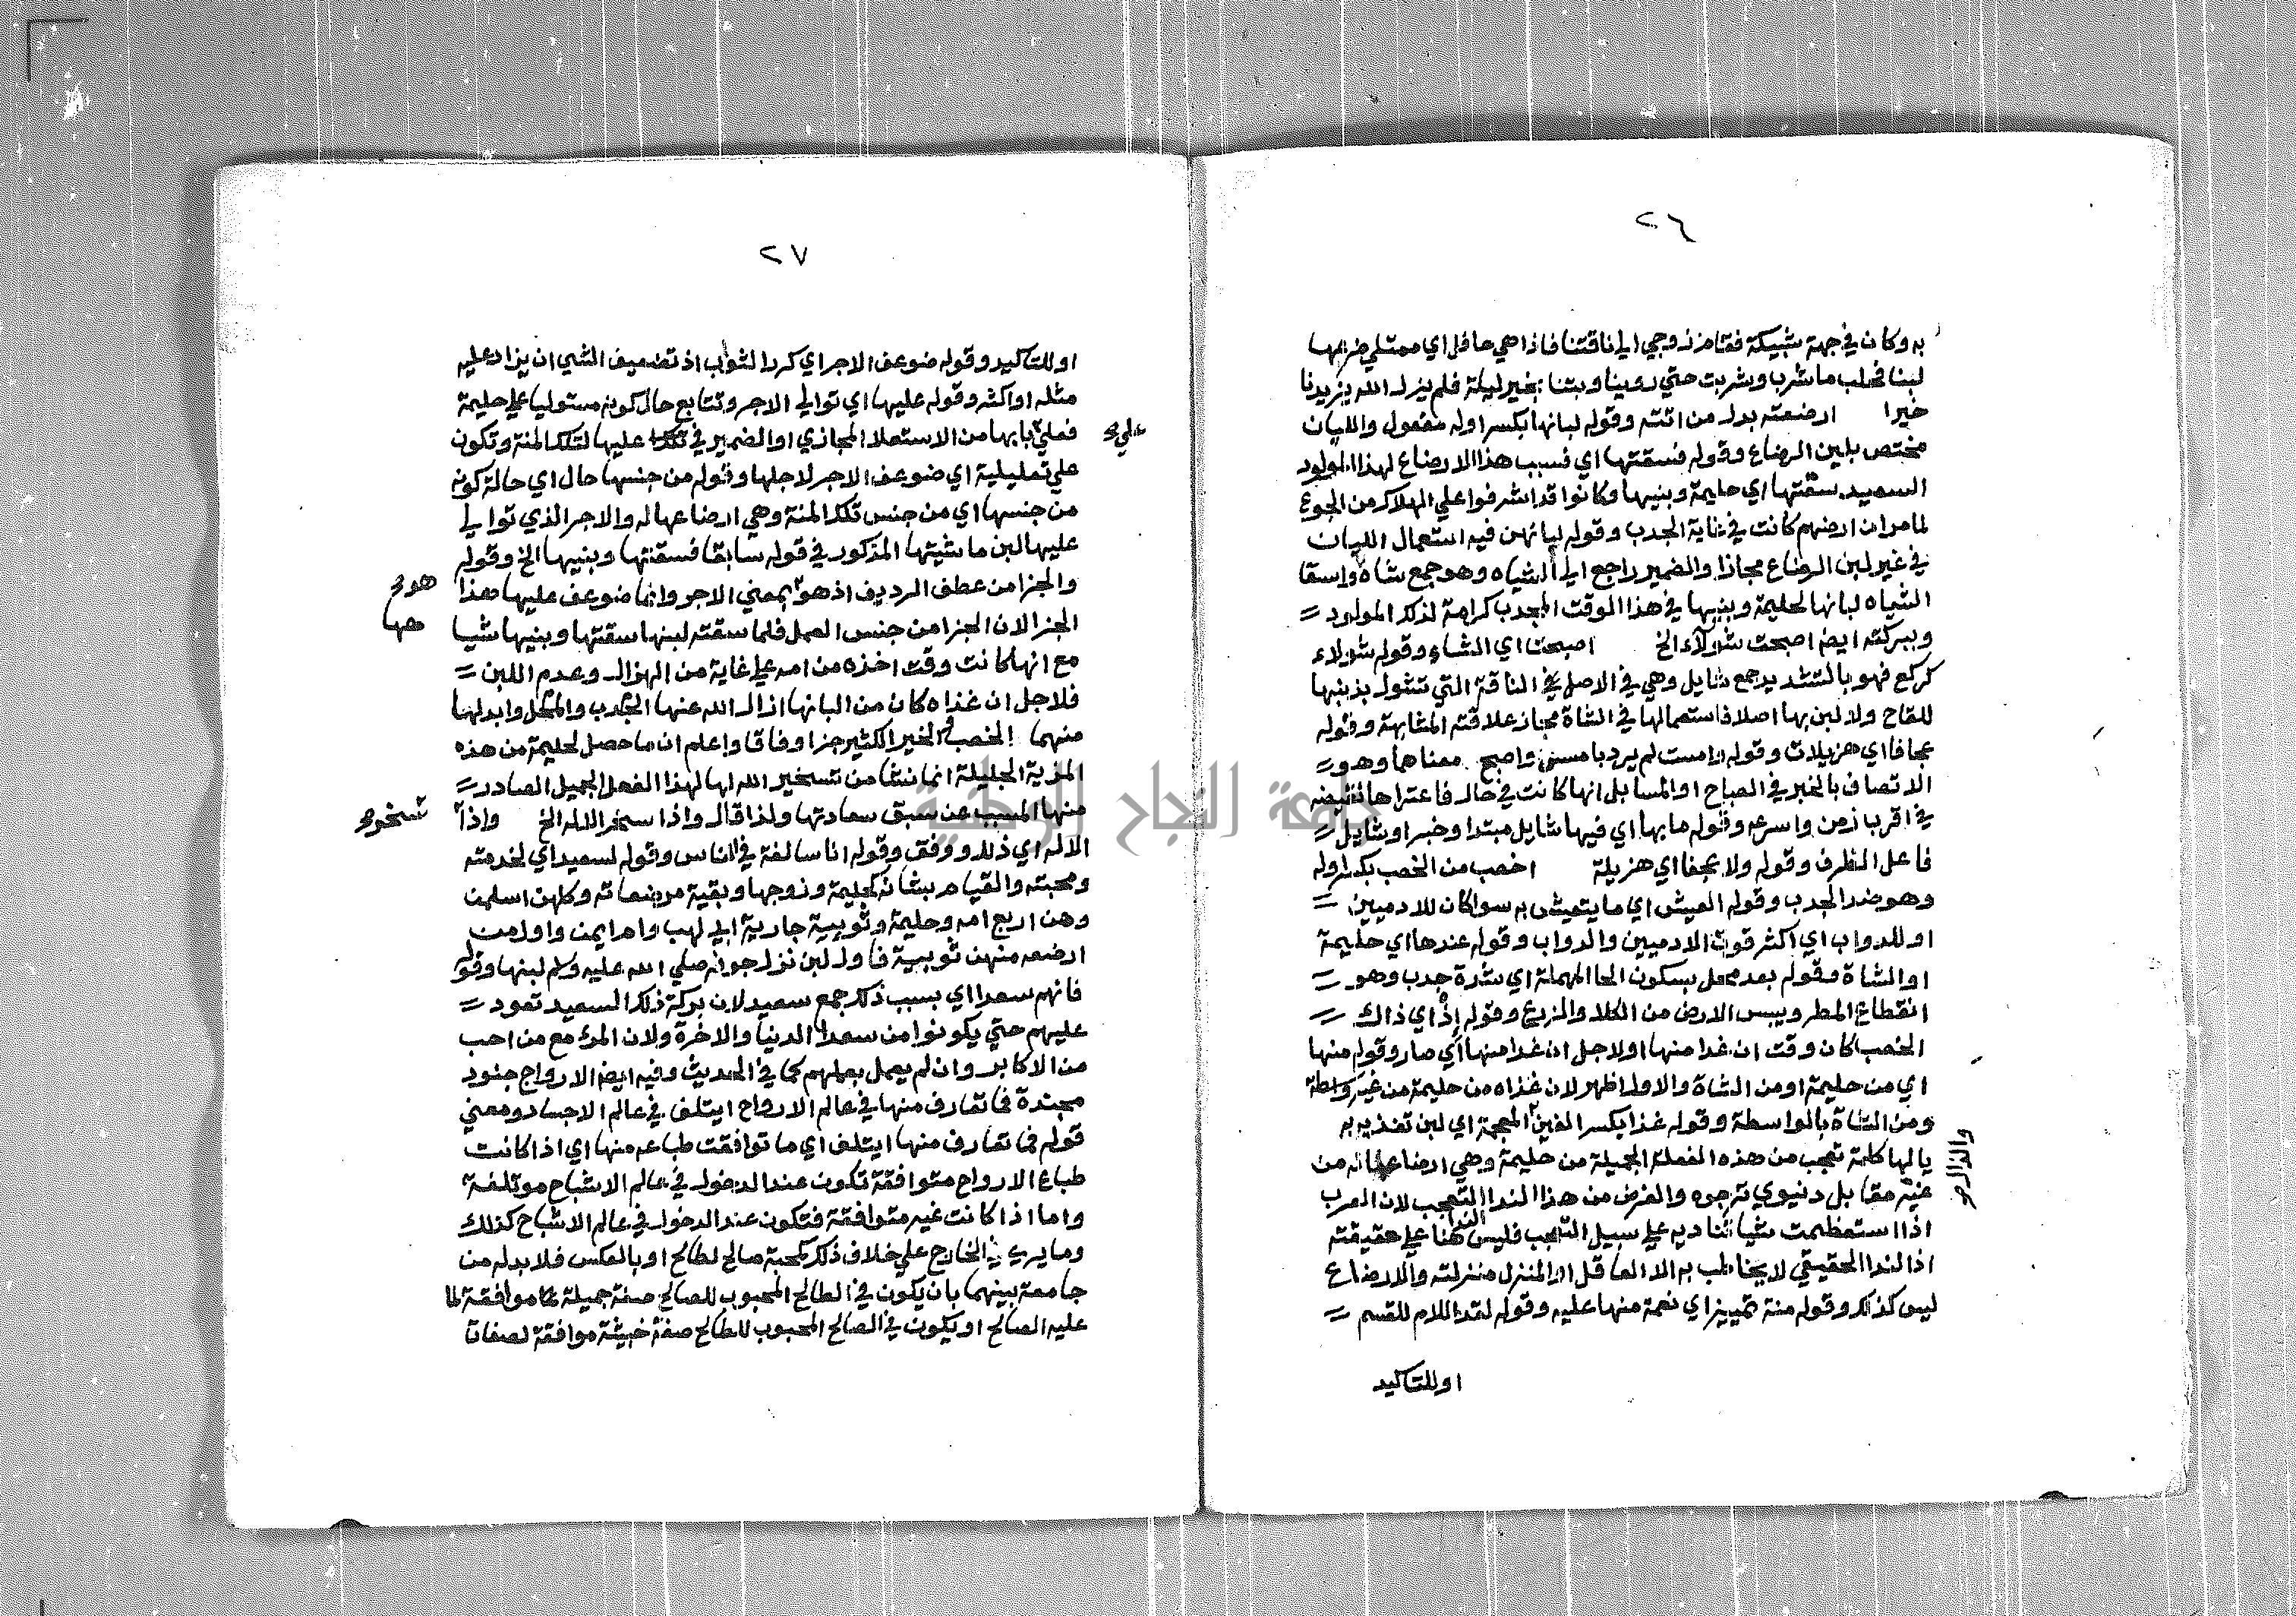 ٢٦
به وكان في جهة شبيكة فقام زوجي الي ناقتنا فاذا هي حافل اي ممتلي ضرعها
لبنا فحلب ما شرب وشربت حتي روينا وبتنا بخير ليلة فلم يزل الله يزيدنا
خيرا ارضعته بدل من اتته وقوله لبانها بكسر اوله مفعول واللبان
مختص بلبن الرضاع وقوله فسقتها اي فسبب هذا الارضاع لهذا المولود
السعيد سقتها اي حليمة وبنيها وكانوا قد اشرفوا علي الهلاك من الجوع
لما مر ان ارضهم كانت في غاية الجدب وقوله لبانهن فيه استعمال اللبان
في غير لبن الرضاع مجازا والضمير راجع الي الشياه وهو جمع شاة واسقا
الشياه لبانها لحليمة وبنيها في هذا الوقت المجدب كرامة لذلك المولود =
وببركته ايضا اصبحت شولاء الخ اصبحت اي الشاء وقوله شولاء
كركع فهو بالتشديد جمع شايل وهي في الاصل الناقة التي تشول بذنبها
للقاح ولا لبن بها اصلا فاستعمالها في الشاة مجاز علاقته المشابهة وقوله
عجافا اي هزيلات وقوله وامست لم يرد بامسي واصبح معناهما وهو =
الاتصاف بالخبر في الصباح او المسا بل انها كانت في حال فاعتراها نقيضه
في اقرب زمن واسرعه وقوله ما بها اي فيها شايل مبتدا وخبر او شايل =
فاعل الظرف وقوله ولا عجفا اي هزيلة اخصب من الخصب بكسر اوله
وهو ضد الجدب وقوله العيش اي ما يتعيش به سوا كان للادميين =
او للدواب اي اكثر قوت الادميين والدواب وقوله عندها اي حليمة
او الشاة وقوله بعد محل بسكون الحا المهملة اي شدة جدب وهو =
انقطاع المطر ويبس الارض من الكلا والزرع وقوله اذ اي ذاك =
الخصب كان وقت ان غدا منها او لاجل ان غدا منها اي صار وقوله منها
اي من حليمة او من الشاة والاول اظهر لان غذاه من حليمة من غير واسطة
ومن الشاة بالواسطة وقوله غذا بكسر الغين المعجمة اي لبن تغذيه به
والذال صح
يا لها كلمة تعجب من هذه الفعلة الجميلة من حليمة وهي ارضاعها له من
غير مقابل دنيوي ترجوه والغرض من هذا الندا التعجب لان العرب
اذا استعظمت شيا تناديه علي سبيل التعجب فليس الندا هنا علي حقيقته
اذ الندا الحقيقي لا يخاطب به الا العاقل او المنزل منزلته والارضاع
ليس كذلك وقوله منة تمييز اي نعمة منها عليه وقوله لقد اللام للقسم =
او للتاكيد
٢٧
او للتاكيد وقوله ضوعف الاجر اي كرر الثواب اذ تضعيف الشي ان يزاد عليه
مثله او اكثر وقوله عليها اي توالي الاجر وتتابع حال كونه مستوليا علي حليمة
فعلي بابها من الاستعلا المجازي او الضمير في عليها لتلك المنة وتكون
علي صح
علي تعليلية اي ضوعف الاجر لاجلها وقوله من جنسها حال اي حالة كونه
من جنسها اي من جنس تلك المنة وهي ارضاعها له والاجر الذي توالي
عليها لبن ماشيتها المذكور في قوله سابقا فسقتها وبنيها الخ وقوله
والجزا من عطف الرديف اذ هو بمعني الاجر وانما ضوعف عليها هذا
الجزا لان الجزا من جنس العمل فلما سقته لبنها سقتها وبنيها شيا
مع انها كانت وقت اخذه من امه علي غاية من الهزال وعدم اللبن =
فلاجل ان غذاه كان من البانها ازال الله عنها الجدب والمحل وابدلها
منهما الخصب والخير الكثير جزا وفاقا واعلم ان ما حصل لحليمة من هذه
المزية الجليلة انما نشا من تسخير الله لها لهذا الفعل الجميل الصادر =
منها المسبب عن سبق سعادتها ولذا قال واذا سخر الاله الخ واذا
الاله اي ذلل ووفق وقوله اناسا لغة في اناس وقوله لسعيد اي لخدمته
ومحبته والقيام بشانه كحليمة وزوجها وبقية مرضعاته وكلهن اسلمن
وهن اربع امه وحليمة وثويبية جارية ابي لهب وام ايمن واول من
ارضعه منهن ثويبية فاول لبن نزل جوفه صلي الله عليه وسلم لبنها وقوله
فانهم سعدا اي بسبب ذلك جمع سعيد لان بركة ذلك السعيد تعود =
عليهم حتي يكونوا من سعدا الدنيا والاخرة ولان المرء مع من احب
من الاكابر وان لم يعمل بعملهم كما في الحديث وفيه ايضا الارواح جنود
مجندة فما تعارف منها في عالم الارواح ايتلف في عالم الاجساد ومعني
قوله فما تعارف منها ايتلف اي ما توافقت طباعه منها اي اذا كانت
طباع الارواح متوافقة تكون عند الدخول في عالم الاشباح موتلفة
واما اذا كانت غير متوافقة فتكون عند الدخول في عالم الاشباح كذلك
وما يري في الخارج علي خلاف ذلك كمحبة صالح لطالح او بالعكس فلا بد له من
جامعة بينهما بان يكون في الطالح المحبوب للصالح صفة جميلة موافقة لما
عليه الصالح او يكون في الصالح المحبوب للطالح صفة خبيثة موافقة لصفات
جامعة النجاح الوطنية